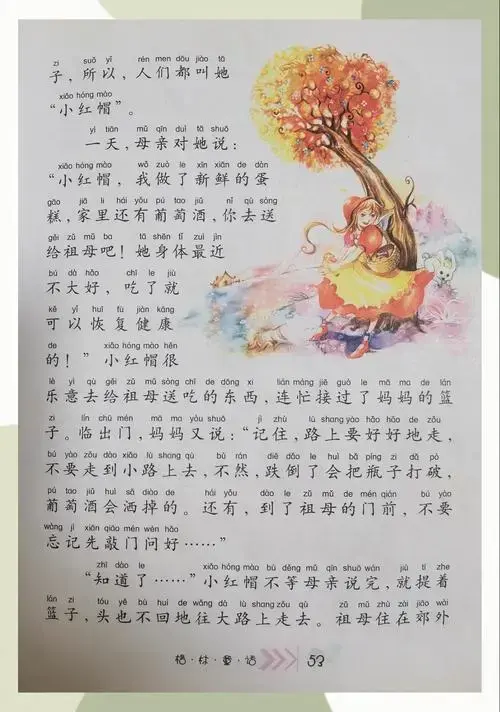 zi suǒ yǐ rén men dōu jiào tā
子，所以，人们都叫她
xiǎo hóng mào
“小红帽”。
yì tiān mǔ qīn duì tā shuō
一天，母亲对她说：
xiǎo hóng mào wǒ zuò le xīn xiān de dàn
“小红帽，我做了新鲜的蛋
gāo jiā li hái yǒu pú tao jiǔ nǐ qù sòng
糕，家里还有葡萄酒，你去送
gěi zǔ mǔ ba tā shēn tǐ zuì jìn
给祖母吧！她身体最近
bú dà hǎo chī le jiù
不大好，吃了就
kě yǐ huī fù jiàn kāng
可以恢复健康
de xiǎo hóng mào hěn
的！”小红帽很
lè yì qù gěi zǔ mǔ sòng chī de dōng xi lián máng jiē guò le mā ma de lán
乐意去给祖母送吃的东西，连忙接过了妈妈的篮
zi lín chū mén mā ma yòu shuō jì zhù lù shang yào hǎo hāo de zǒu
子。临出门，妈妈又说：“记住，路上要好好地走，
bú yào zǒu dào xiǎo lù shang qù bù rán diē dǎo le huì bǎ píng zi dǎ pò
不要走到小路上去，不然，跌倒了会把瓶子打破，
pú tao jiǔ huì sǎ diào de hái yǒu dào le zǔ mǔ de mén qián bú yào
葡萄酒会洒掉的。还有，到了祖母的门前，不要
wàng jì xiān qiāo mén wèn hǎo
忘记先敲门问好……”
zhī dào le xiǎo hóng mào bù děng mǔ qīn shuō wán jiù tí zhe
“知道了……”小红帽不等母亲说完，就提着
lán zi tóu yě bù huí de wǎng dà lù shang zǒu qù zǔ mǔ zhù zài jiāo wài
篮子，头也不回地往大路上走去。祖母住在郊外
格·林·童·话 53